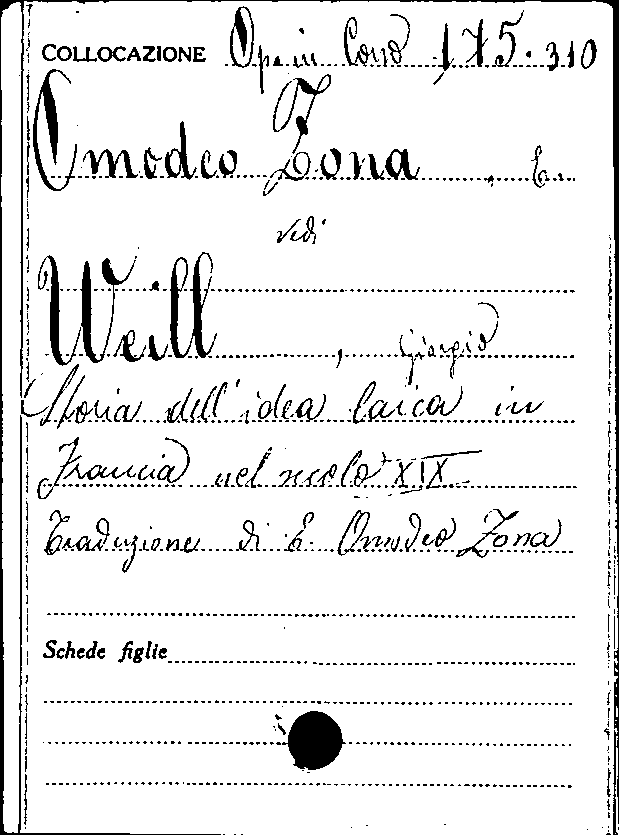 COLLOCAZIONE Op. in Corso 175. 310
Omodeo Zona , E.
vedi
Weill , Giorgio
Storia dell'idea laica in
Francia nel secolo XIX
Traduzione di E. Omodeo Zona
Schede figlie